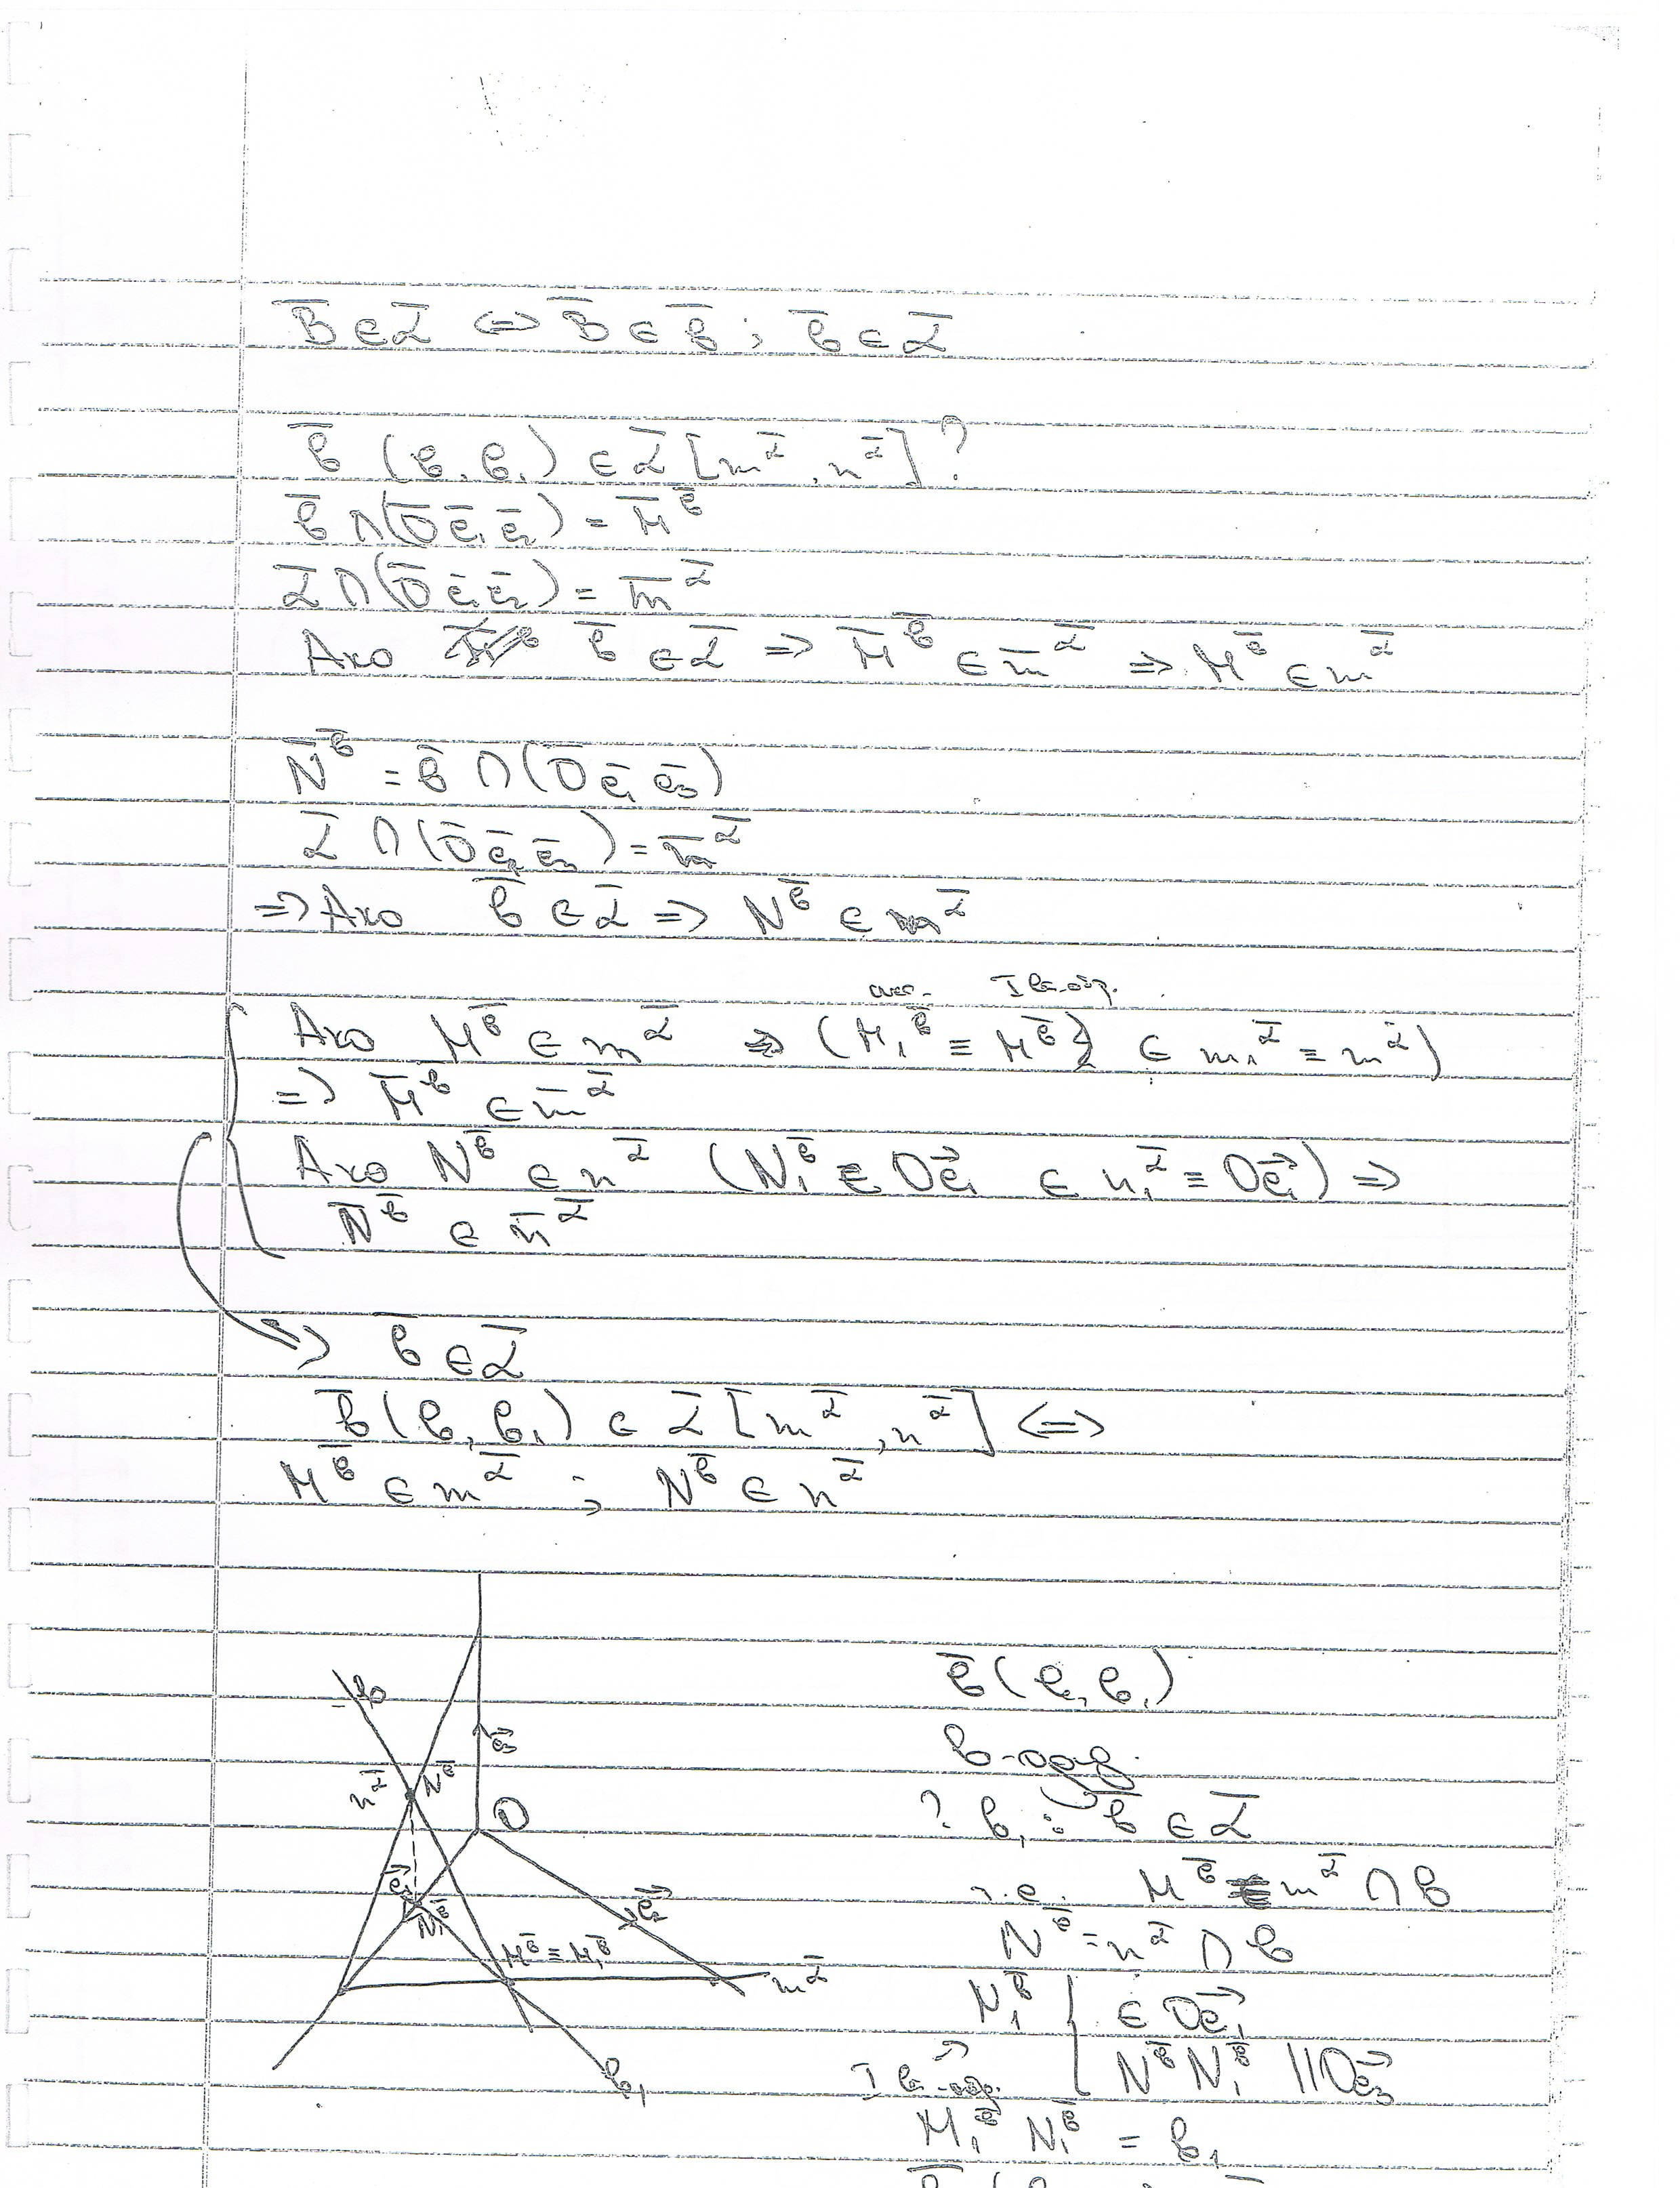 B̅ ∈ α̅ ⇔ B̅ ∈ b̅ ; b̅ ∈ α̅
b̅ (b, b₁) ∈ α̅ [m^α̅, n^α̅] ?
b̅ ∩ (O̅ e̅₁ e̅₂) = M̅^b̅
α̅ ∩ (O̅ e̅₁ e̅₂) = m̅^α̅
Ако b̅ ∈ α̅ ⇒ M̅^b̅ ∈ m̅^α̅ ⇒ M^b̅ ∈ m^α̅
N̅^b̅ = b̅ ∩ (O̅ e̅₁ e̅₃)
α̅ ∩ (O̅ e̅₂ e̅₃) = m̅^α̅
⇒ Ако b̅ ∈ α̅ ⇒ N^b̅ ∈ m^α̅
Ако M^b̅ ∈ m^α̅ ⇒ (M₁^b̅ ≡ M^b̅ ∈ m₁^α̅ ≡ m^α̅)
⇒ M̅^b̅ ∈ m̅^α̅
Ако N^b̅ ∈ n^α̅ (N₁^b̅ ∈ Oe₁→ ∈ n₁^α̅ ≡ Oe₁→) ⇒
N̅^b̅ ∈ n̅^α̅
⇒ b̅ ∈ α̅
b̅ (b, b₁) ∈ α̅ [m^α̅, n^α̅] ⇔
M^b̅ ∈ m^α̅ ; N^b̅ ∈ n^α̅
b
n^α̅
N^b̅
e₃→
O
e₁→
N₁^b̅
e₂→
M^b̅ ≡ M₁^b̅
m^α̅
b₁
b̅ (b, b₁)
? b₁ : b̅ ∈ α̅
т.е. M^b̅ = m^α̅ ∩ b
N^b̅ = n^α̅ ∩ b
N₁^b̅ { ∈ Oe₁→
N^b̅ N₁^b̅ || Oe₃→
M₁^b̅ N₁^b̅ = b₁